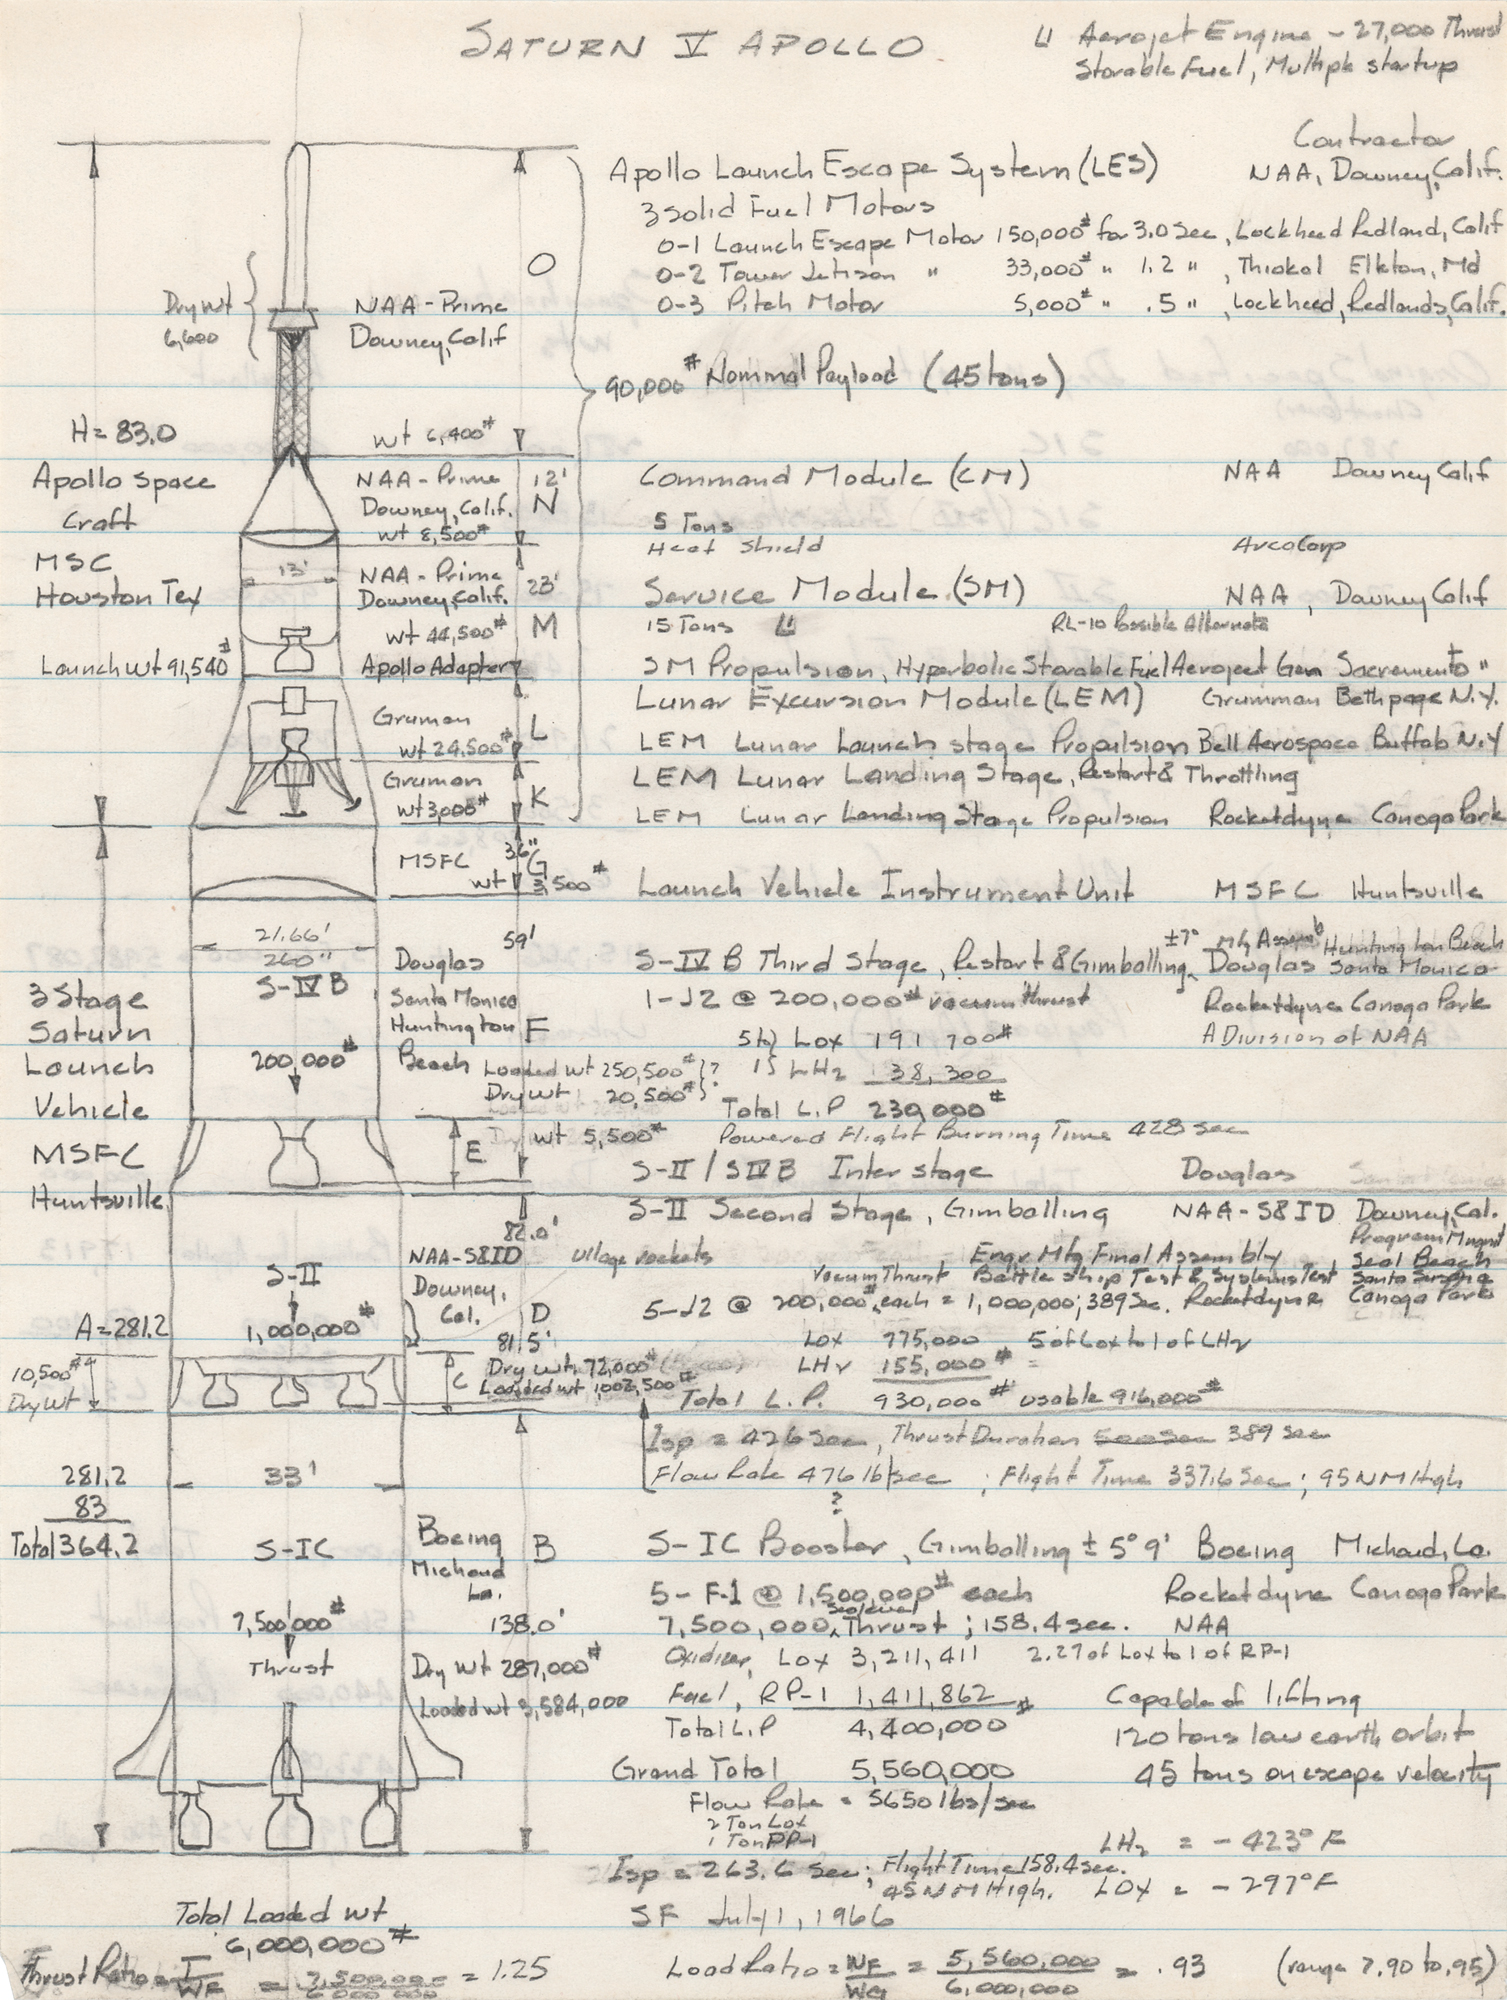 SATURN V APOLLO
Aerojet Engine - 27,000 Thrust
Storable Fuel, Multiple startup
Contractor
Apollo Launch Escape System (LES) NAA, Downey, Calif.
3 Solid Fuel Motors
0-1 Launch Escape Motor 150,000# for 3.0 Sec, Lockheed Redland, Calif
0-2 Tower Jetison " 33,000# " 1.2 " , Thiokol Elkton, Md
0-3 Pitch Motor 5,000# " .5 " , Lockheed, Redlands, Calif.
O
Dry wt
6,600
NAA-Prime
Downey, Calif
90,000# Nominal Payload (45 tons)
H = 83.0
wt 6,400#
Apollo Space
Craft
MSC
Houston Tex
Launch wt 91,540#
NAA-Prime 12'
Downey, Calif. N
wt 8,500#
Command Module (CM) NAA Downey Calif
5 Tons
Heat Shield Avco Corp
13'
NAA-Prime 23'
Downey, Calif.
wt 44,500# M
Apollo Adapter
Service Module (SM) NAA, Downey Calif
15 Tons RL-10 Possible Alternate
SM Propulsion, Hyperbolic Storable Fuel Aeroject Gen Sacremento "
Lunar Excursion Module (LEM) Grumman Bethpage N.Y.
Gruman
wt 24,500# L
LEM Lunar Launch stage Propulsion Bell Aerospace Buffalo N.Y
Gruman
wt 3,000# K
LEM Lunar Landing Stage, Restart & Throttling
LEM Lunar Landing Stage Propulsion Rocketdyne Canoga Park
MSFC 36" G
wt 3,500#
Launch Vehicle Instrument Unit MSFC Huntsville
21.66'
260"
S-IV B
200,000#
59'
Douglas
Santa Monica
Huntington F
Beach
Loaded wt 250,500# ?
Dry wt 20,500#
±7° Mfg Assemb Huntington Beach
S-IV B Third Stage, Restart & Gimballing, Douglas Santa Monica
1-J2 @ 200,000# vacuum thrust Rocketdyne Canoga Park
A Division of NAA
5 Lox 191 700#
1 LH2 38,300
Total L.P 230,000#
Powered Flight Burning Time 428 sec
3 Stage
Saturn
Launch
Vehicle
MSFC
Huntsville
E wt 5,500#
S-II / S IV B Inter stage Douglas
82.0'
S-II Second Stage, Gimballing NAA-S&ID Downey, Cal.
Program Mngmt
NAA-S&ID
Downey,
Cal.
Ullage rockets
Engr Mfg Final Assembly Seal Beach
Vacum Thrust Battle ship Test & Systems Test Santa Susana
5-J2 @ 200,000# each = 1,000,000; 389 Sec. Rocketdyne Canoga Park
S-II
1,000,000#
D
81.5'
A = 281.2
Lox 775,000 5 of Lox to 1 of LH2
LH2 155,000# =
Total L.P. 930,000# usable 916,000#
10,500#
Dry wt
C
Dry wt. 72,000#
Loaded wt 1,002,500#
Isp = 426 sec, Thrust Duration 500 sec 389 sec
Flow Rate 476 lb/sec ; Flight Time 337.6 Sec; 95 NM High
?
281.2
83
Total 364.2
33'
S-IC
Boeing B
Michoud
La.
S-IC Booster, Gimballing ± 5° 9' Boeing Michoud, La.
5- F-1 @ 1,500,000# each Rocketdyne Canoga Park
7,500,000 Sea level Thrust ; 158.4 sec. NAA
7,500,000#
Thrust
138.0'
Oxidizer, Lox 3,211,411 2.27 of Lox to 1 of RP-1
Dry wt 287,000#
Loaded wt 3,584,000
Fuel, RP-1 1,411,862 #
Total L.P 4,400,000
Capable of lifting
120 tons low earth orbit
45 tons on escape velocity
Grand Total 5,560,000
Flow Rate = 5650 lbs/sec
2 Ton Lox
1 Ton RP-1
LH2 = -423° F
Isp = 263.6 sec; Flight Time 158.4 sec.
45 NM High. LOx = -297° F
SF July 1, 1966
Total Loaded wt
6,000,000#
Thrust Ratio = = 7,500,000 / 6,000,000 = 1.25
Load Ratio = WF / WG = 5,560,000 / 6,000,000 = .93 (range 7.90 to .95)